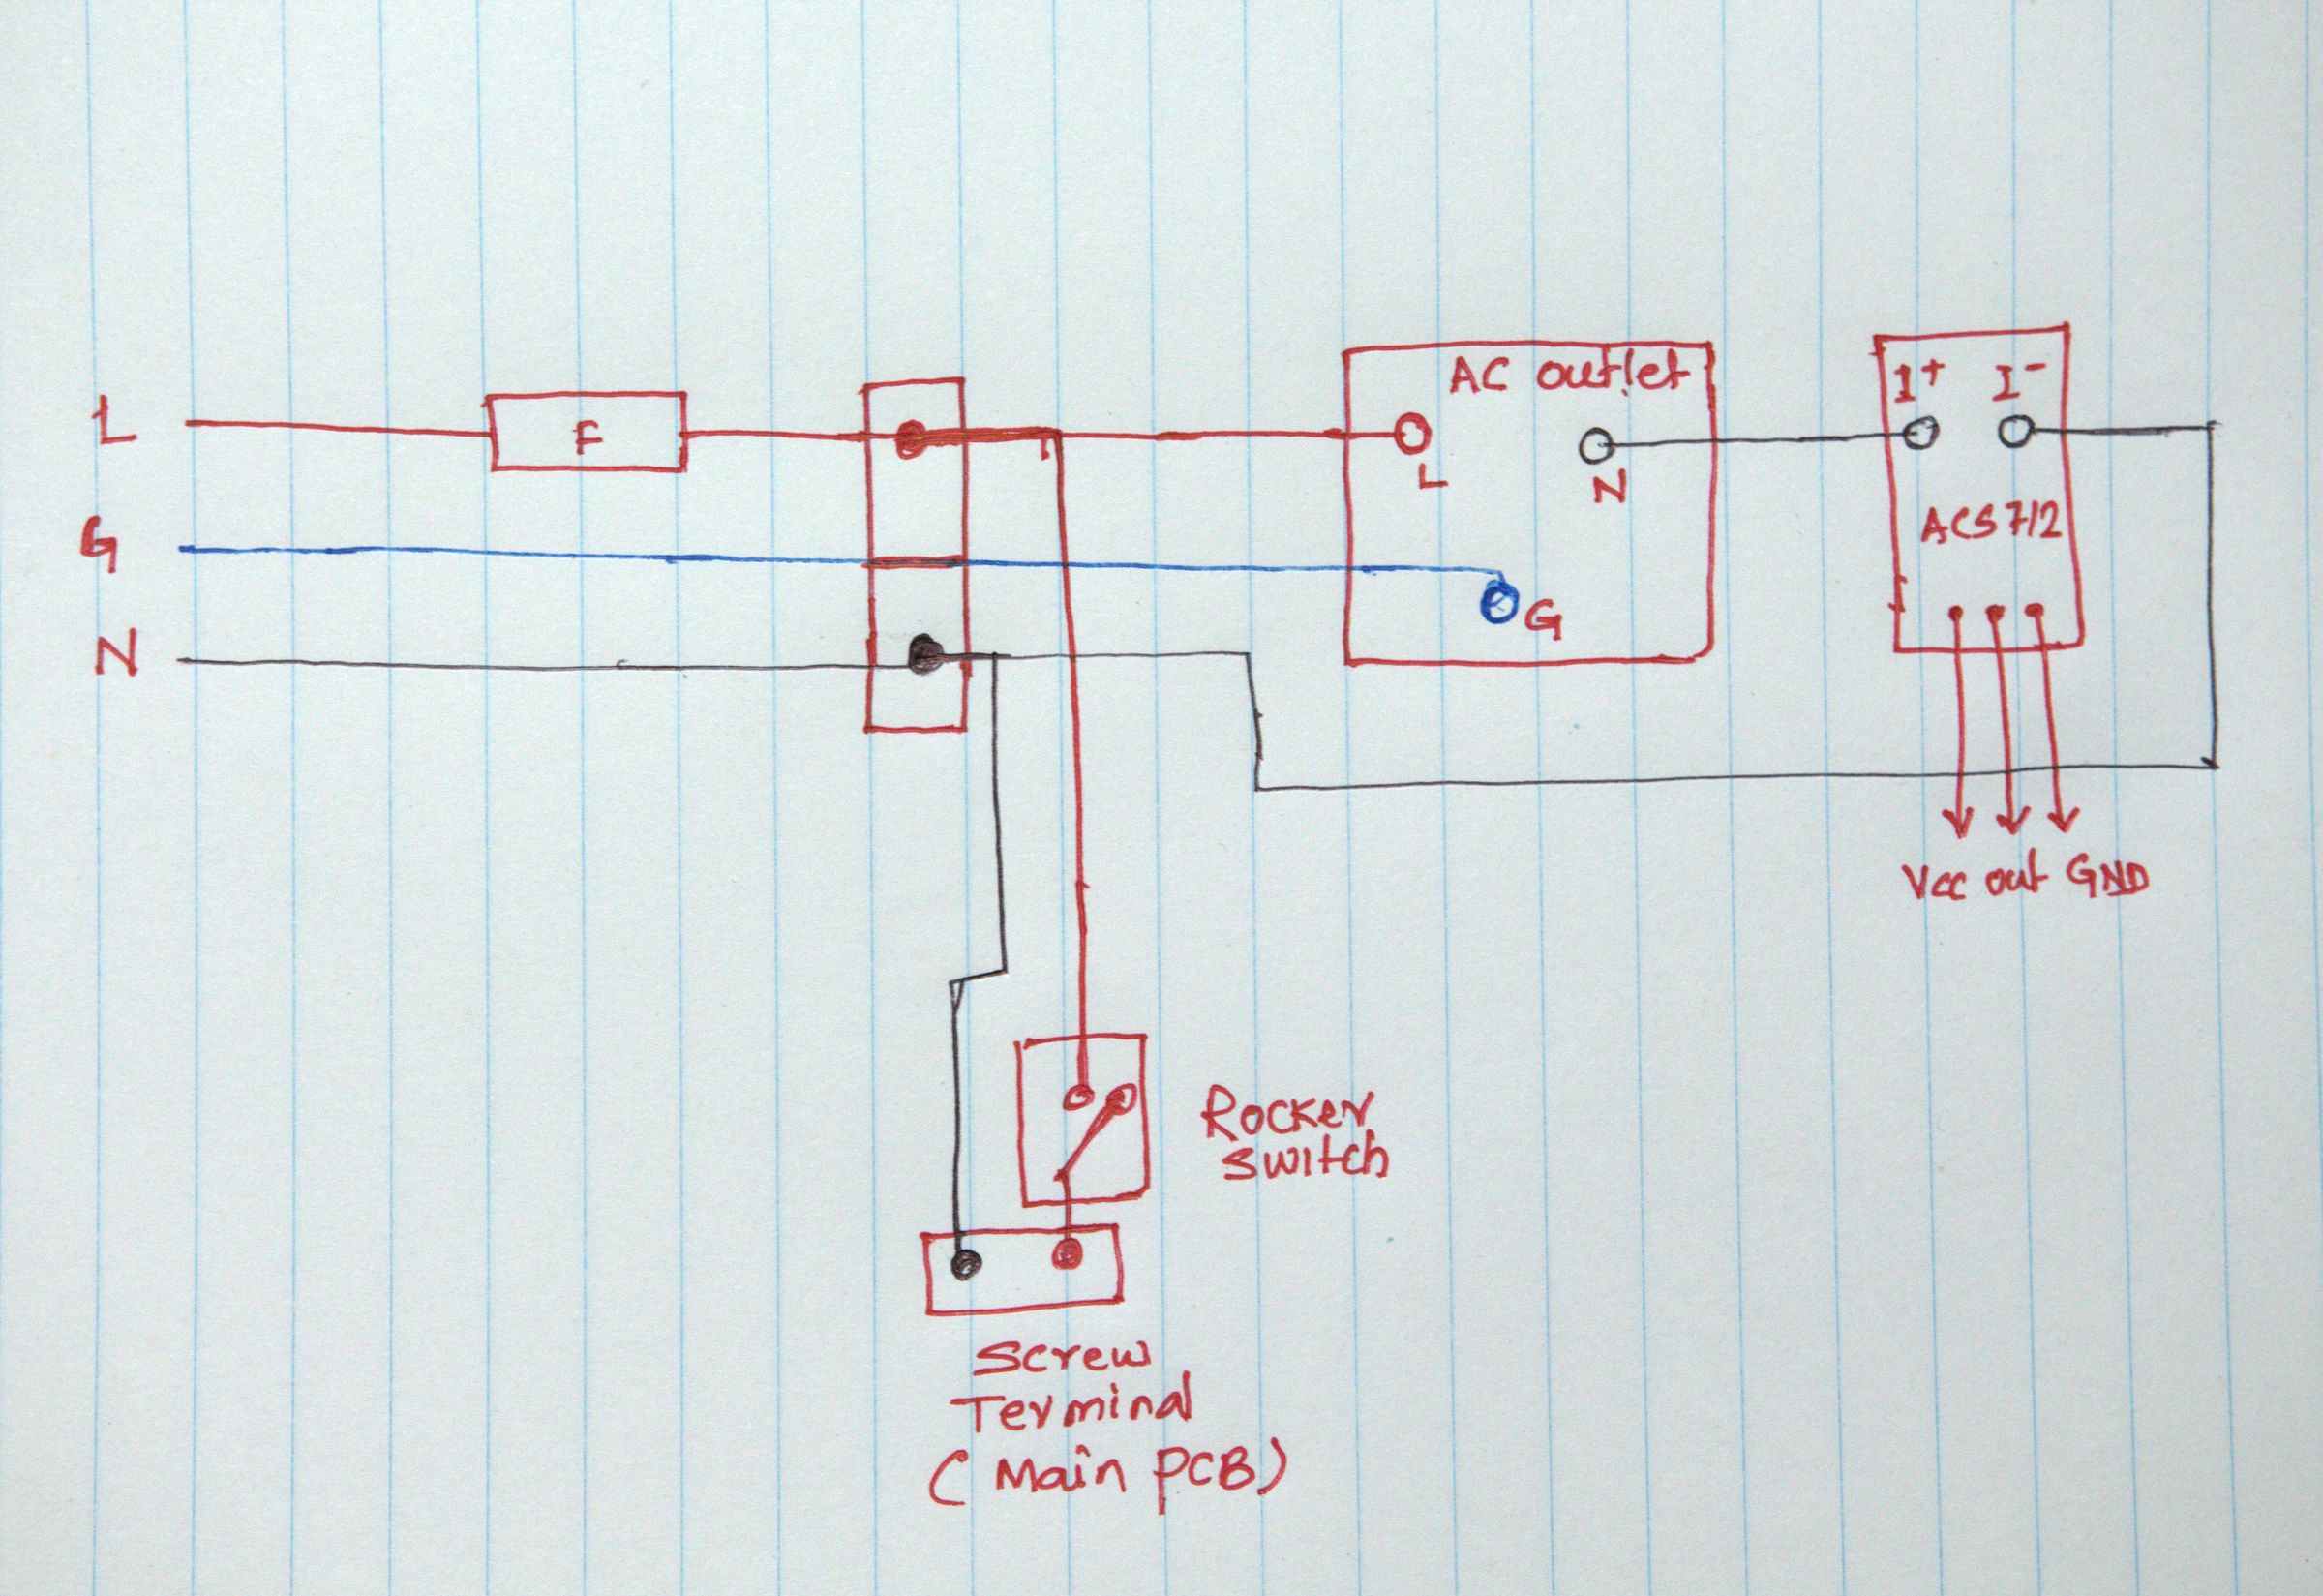 L
F
G
N
AC outlet
L
N
G
I+ I-
ACS712
Vcc out GND
Rocker
switch
Screw
Terminal
(Main PCB)